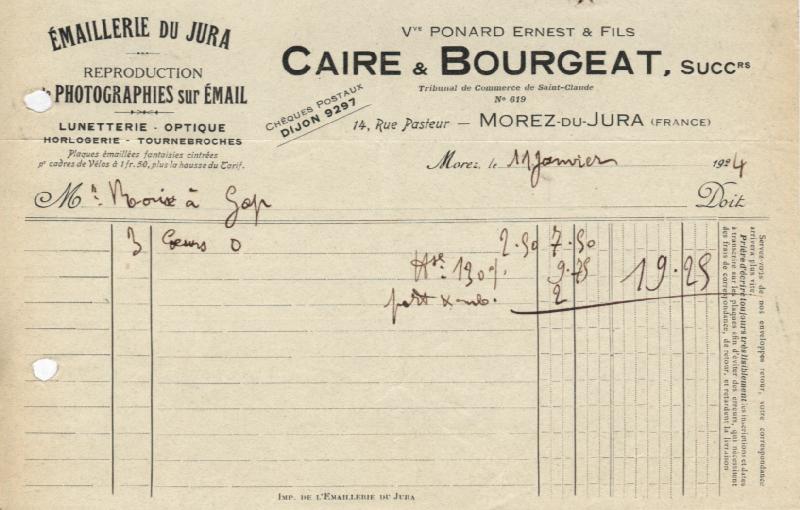 ÉMAILLERIE DU JURA
REPRODUCTION
PHOTOGRAPHIES sur ÉMAIL
LUNETTERIE - OPTIQUE
HORLOGERIE - TOURNEBROCHES
Plaques émaillées fantaisies cintrées
pr cadres de Vélos à 1 fr. 50, plus la hausse du Tarif.
CHÈQUES POSTAUX
DIJON 9297
Vve PONARD ERNEST & FILS
CAIRE & BOURGEAT, SUCCRS
Tribunal de Commerce de Saint-Claude
No 619
14, Rue Pasteur — MOREZ-DU-JURA (FRANCE)
Morez, le 11 Janvier 1924
Mr à Gap Doit
3 Cœurs 0 2.50 7.50
Hse 130% 9.75 19.25
port 2
Servez-vous de nos enveloppes retour, votre correspondance
arrivera plus vite.
Prière d'écrire toujours très lisiblement les inscriptions et dates
à transcrire sur les plaques afin d'éviter des erreurs, qui nécessitent
des frais de correspondance, de retour, et retardent la livraison
IMP. DE L'EMAILLERIE DU JURA